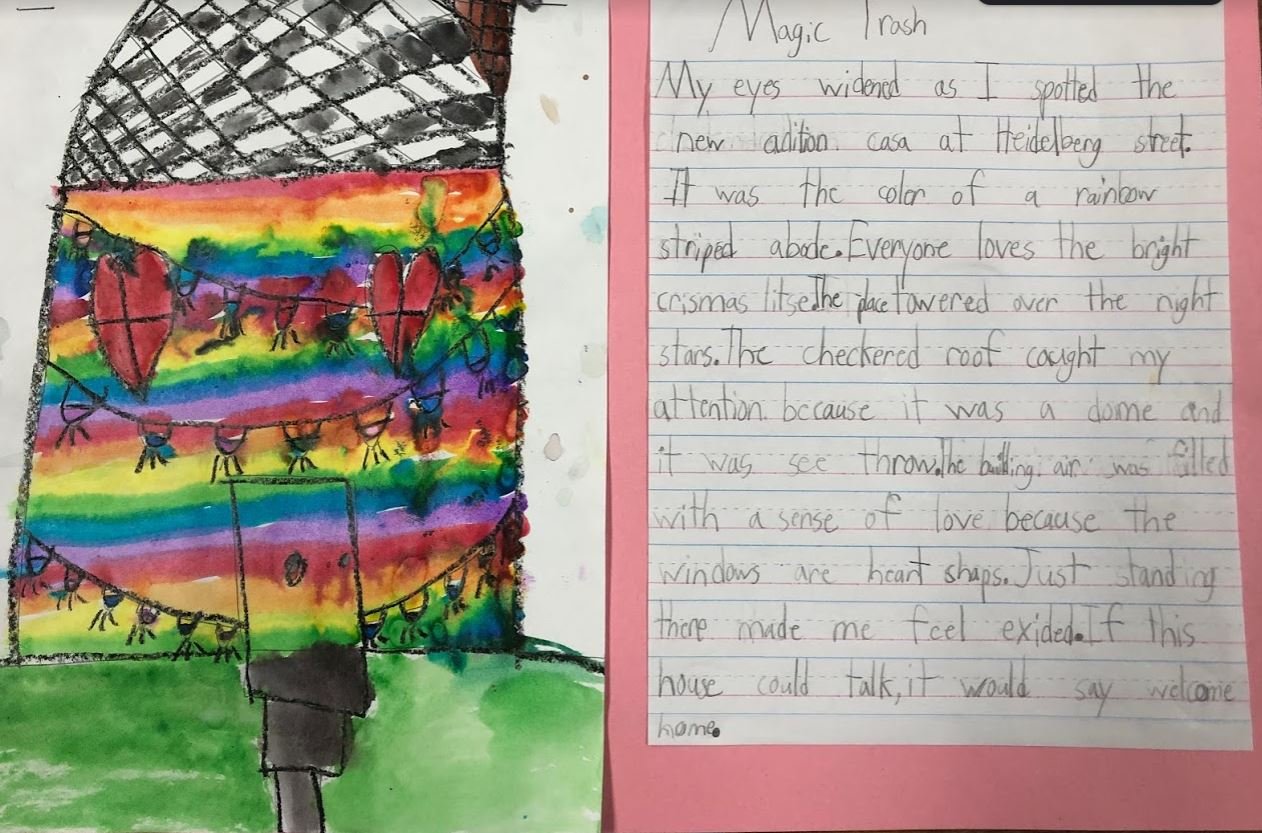 Magic Trash
My eyes widened as I spotted the
new adition casa at Heidelberg street.
It was the color of a rainbow
striped abode. Everyone loves the bright
crismas litse. The place towered over the night
stars. The checkered roof caught my
attention because it was a dome and
it was see throw. The building air was filled
with a sense of love because the
windows are heart shaps. Just standing
there made me feel exided. If this
house could talk, it would say welcome
home.